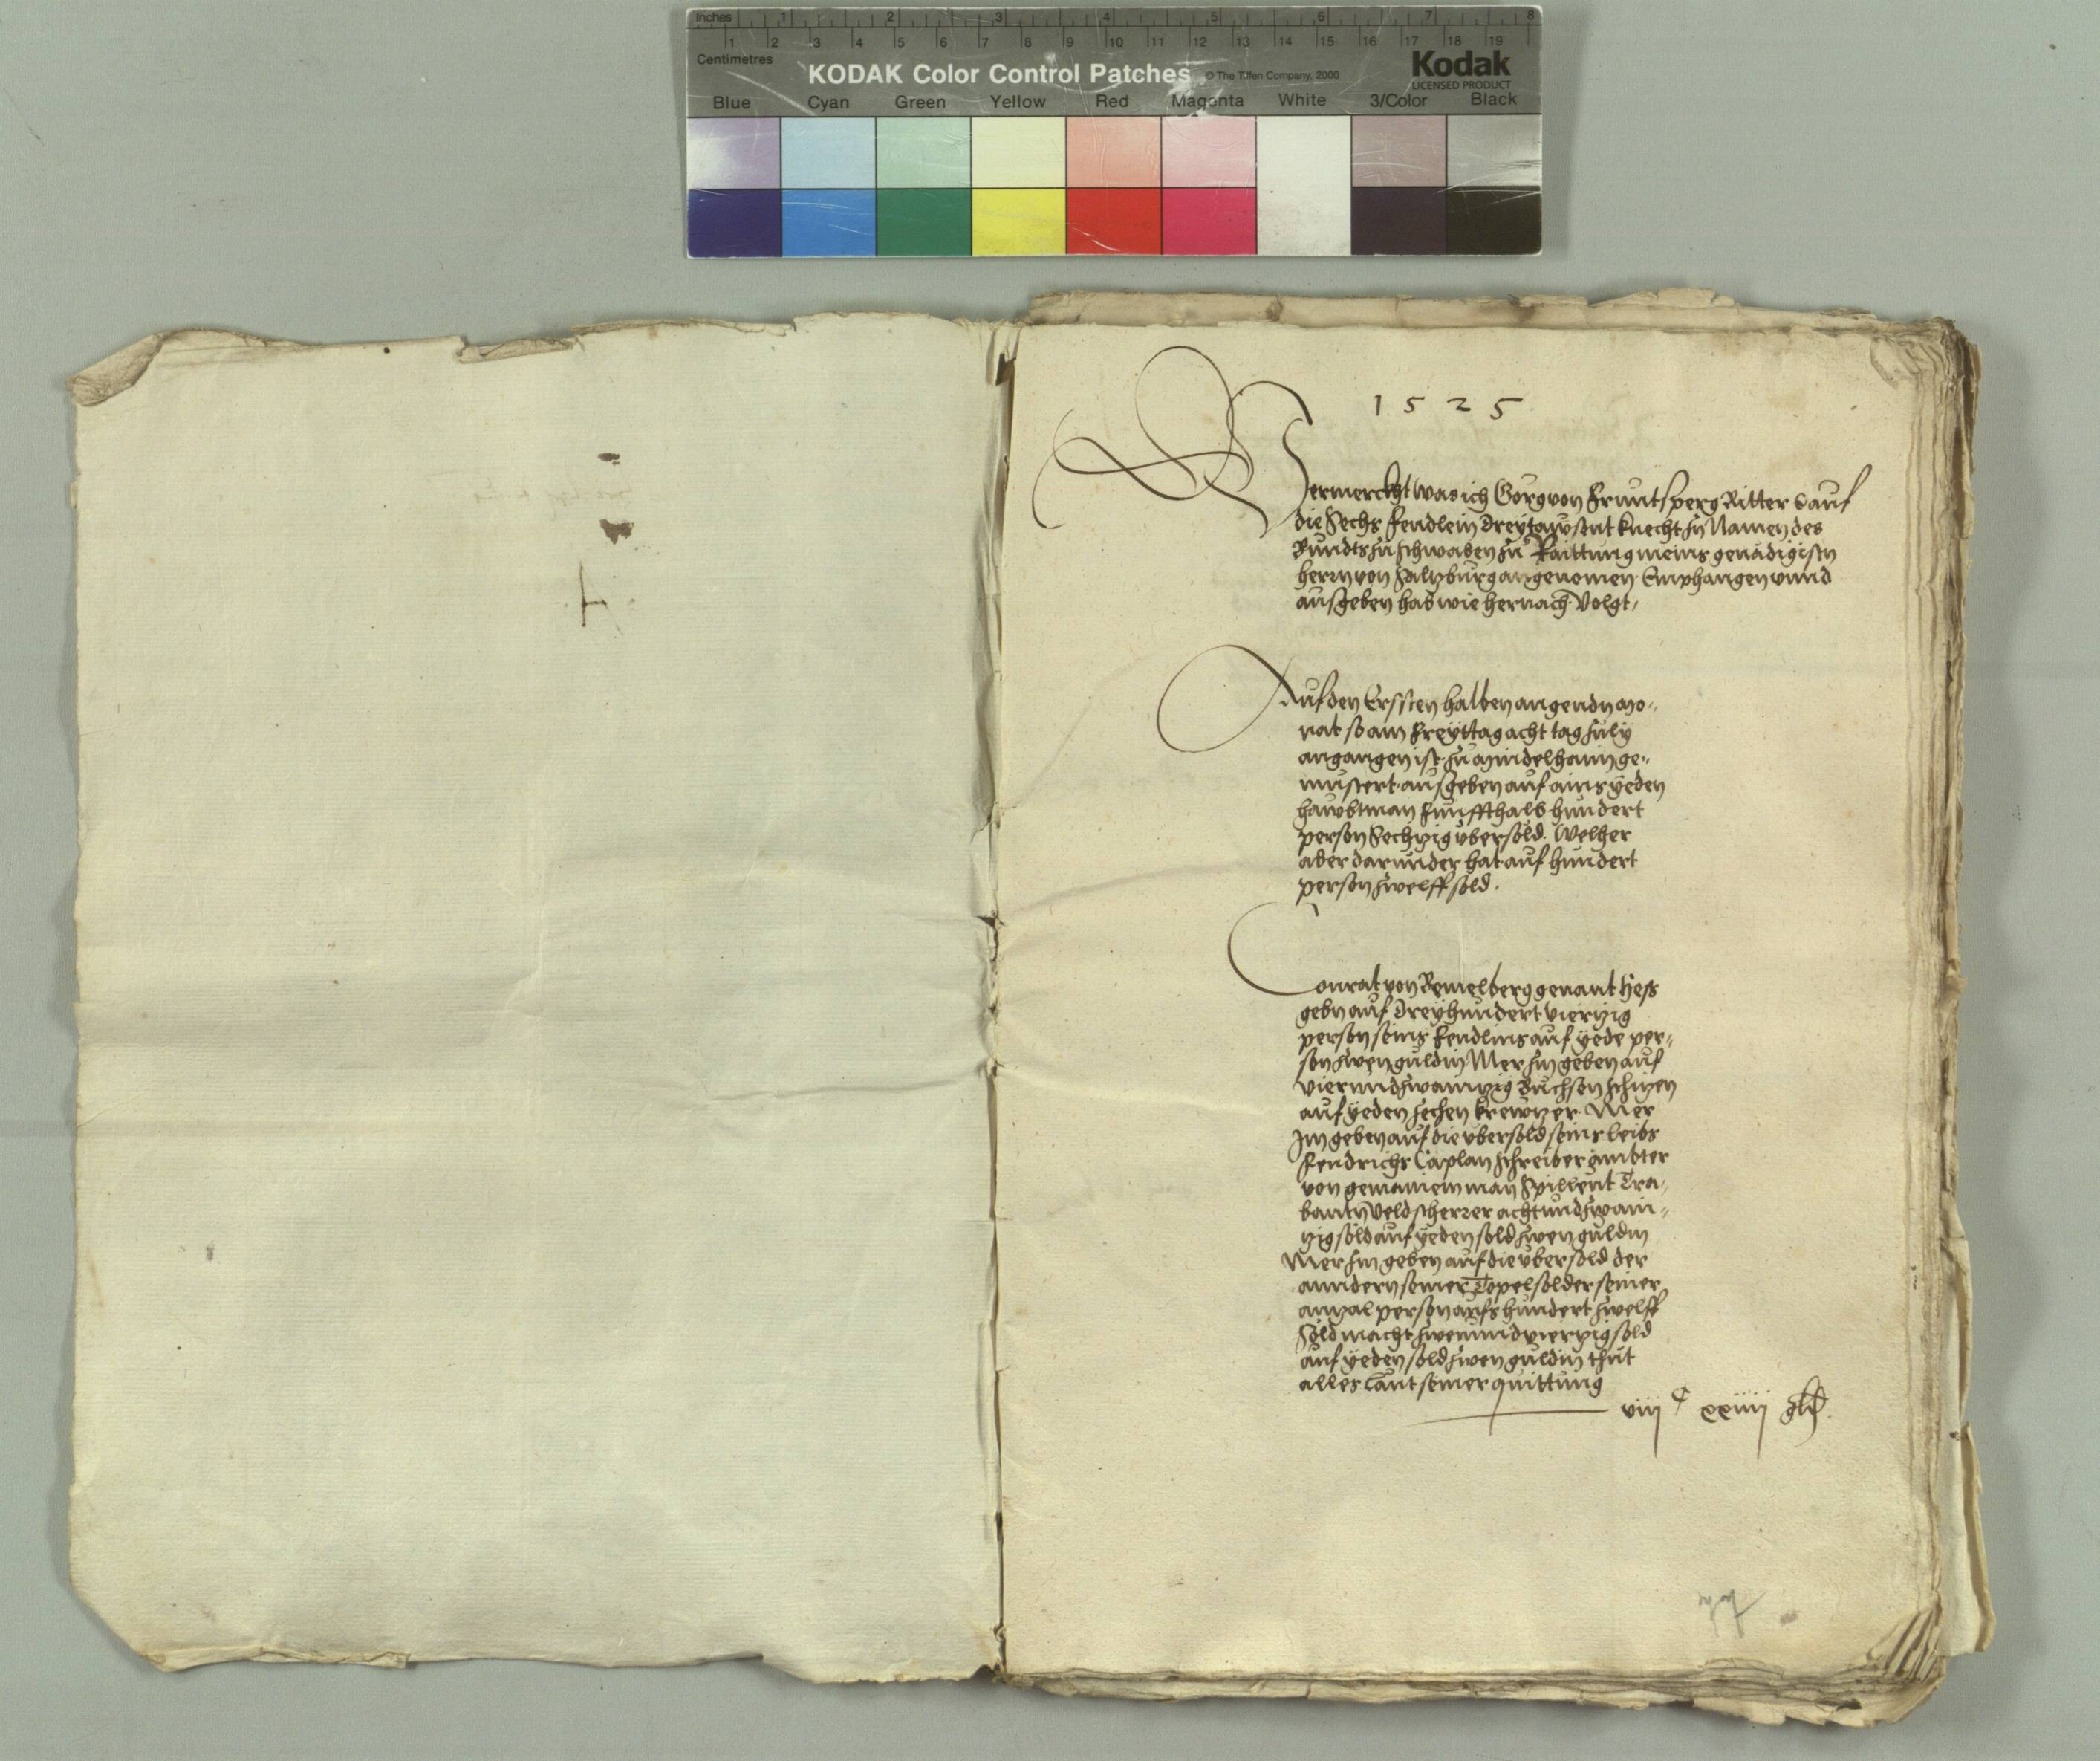 Inches 1 2 3 4 5 6 7 8
1 2 3 4 5 6 7 8 9 10 11 12 13 14 15 16 17 18 19
Centimetres
KODAK Color Control Patches © The Tiffen Company, 2000 Kodak
LICENSED PRODUCT
Blue Cyan Green Yellow Red Magenta White 3/Color Black
1525
Vermerckht was ich Görg von Fruntsperg Ritter Sauf
die Sechs fendlein dreytawsent knecht In Namen des
Bundts zu Schwaben zu Raittung meins genädigistn
herrn von Saltzburg angenomen Emphangen unnd
ausgeben hab wie hernach Volgt,
Auf den Erssten halben angendn mo-
nat so am Freyttag acht tag July
angangen ist zu Mindelhaim ge-
mustert ausgeben auf ains yeden
hawbtman Funffthalb hundert
person Sechtzig übersöld. Welher
aber darunder hat auf hundert
person zwelff söld.
Conrat von Bemelberg genant Hess
gebn auf dreyhundert viertzig
person seins Fendlins auf yede per-
son zwen guldin Mer Im geben auf
vierundzwaintzig Buchsen schutzen
auf yeden zechen krewtzer. Mer
Im geben auf die übersöld seins leibs
Fendrichs Caplan Schreiber ambter
von gemainem man Spilleut Tra-
bantn Veldscherrer achtundzwain-
tzig söld auf yeden sold zwen guldin
Mer Im geben auf die übersöld der
anndern seiner Topelsoldner seiner
antzal person aufs hundert zwelff
Söld macht zwenundviertzig söld
auf yeden sold zwen guldin thut
alles Laut seiner quittung
viij C xxiiij gld.